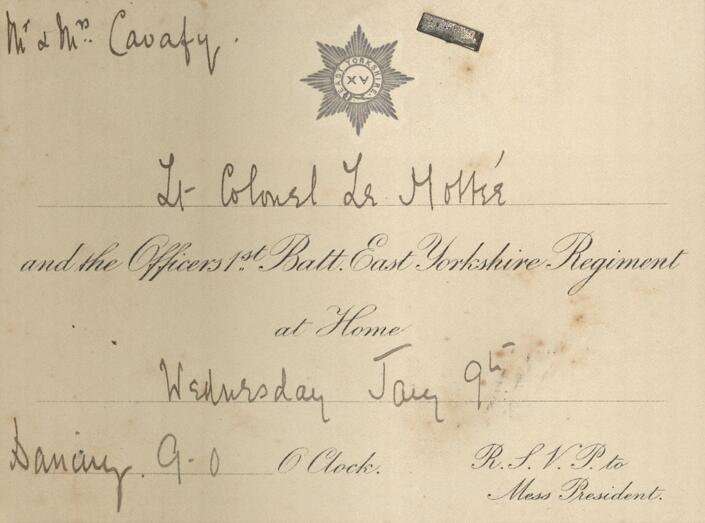 Mr & Mrs Cavafy.
EAST YORKSHIRE.
XV
Lt Colonel Le Mottée
and the Officers 1st Batt. East Yorkshire Regiment
at Home
Wednesday Jany 9th
Dancing. 9-0 O'Clock.
R. S. V. P. to
Mess President.